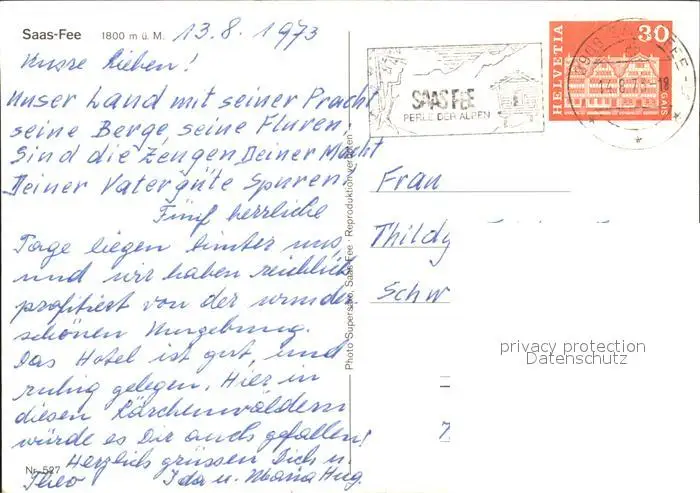 Saas-Fee 1800 m ü. M. 13.8.1973
Unsre Lieben!
Unser Land mit seiner Pracht
seine Berge, seine Fluren.
Sind die Zeugen Deiner Macht
Deiner Vatergüte Spuren.
Fünf herrliche
Tage liegen hinter uns,
und wir haben reichlich
profitiert von der wunder
schönen Umgebung.
Das Hotel ist gut, und
ruhig gelegen. Hier in
diesen Lärchenwäldern
würde es Dir auch gefallen!
Herzlich grüssen Dich u.
Theo Ida u. Maria Hug.
Nr. 527
Photo Supersaxo, Saas-Fee · Reproduktion verboten
SAAS FEE
PERLE DER ALPEN
HELVETIA
30
GAIS
3906 SAAS-FEE
14.8.73-18
Frau
Thildy
Schw
privacy protection
Datenschutz